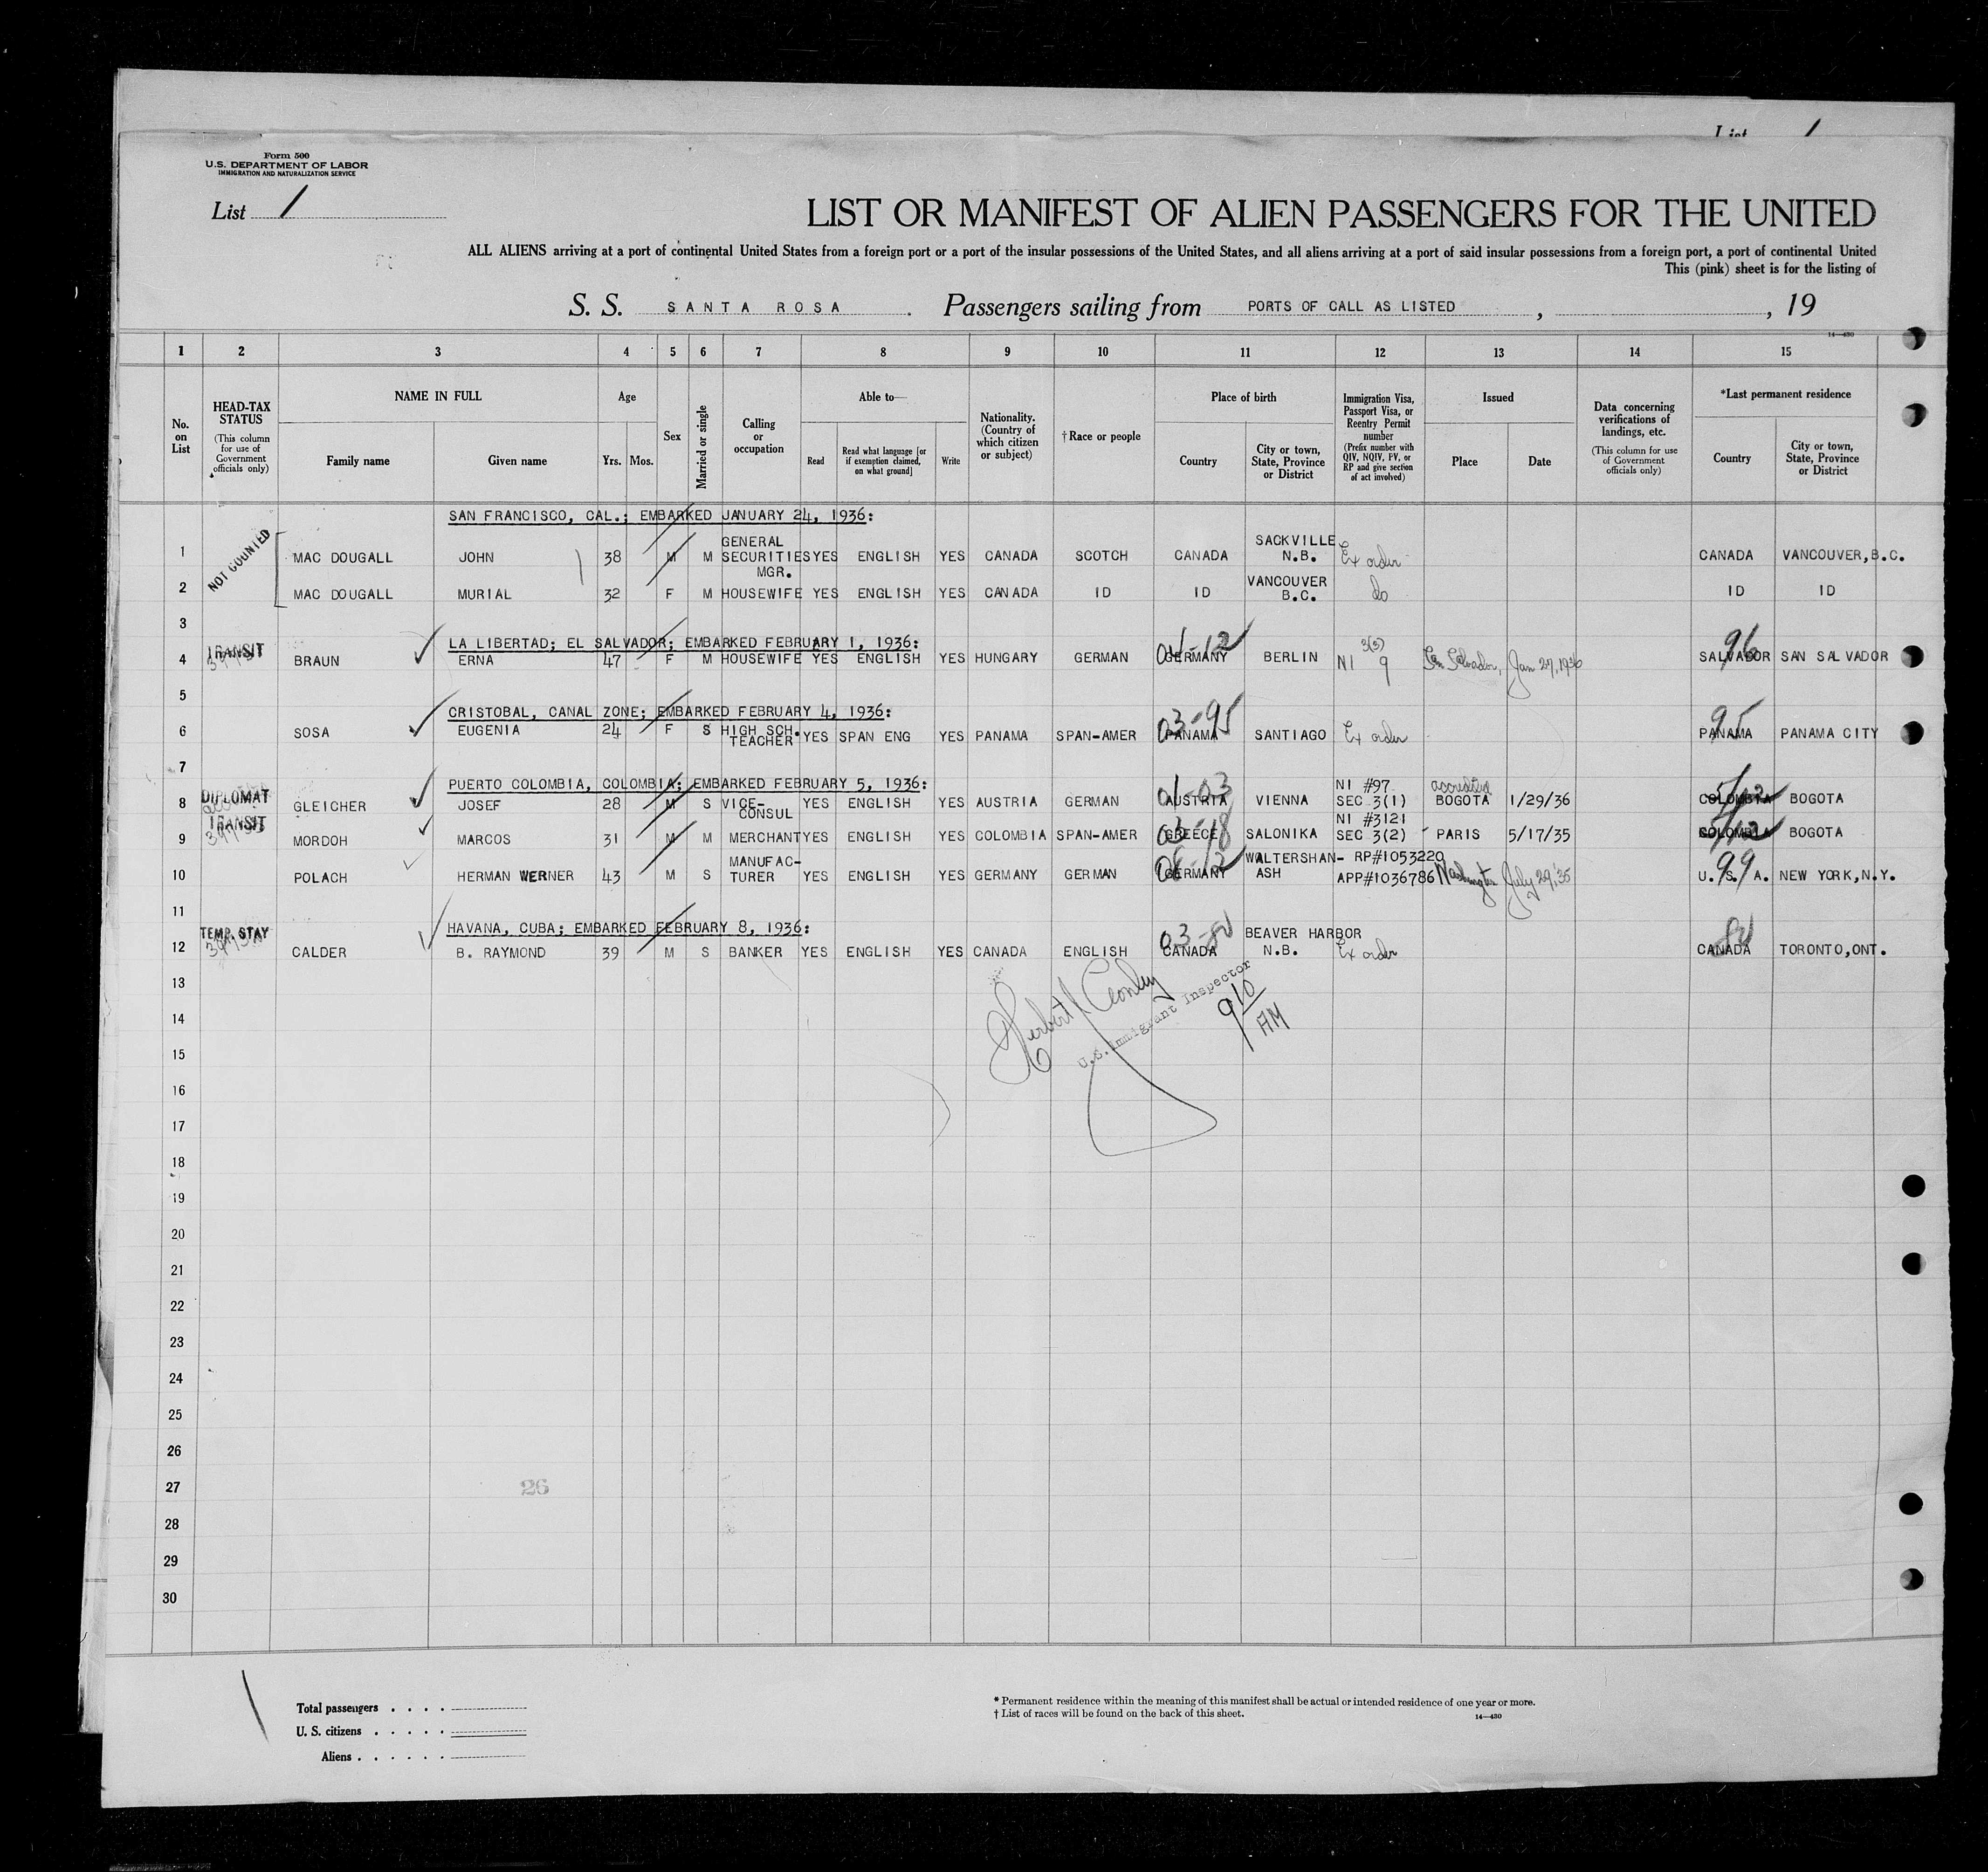 List /
Form 500
U.S. DEPARTMENT OF LABOR
IMMIGRATION AND NATURALIZATION SERVICE
List 1
LIST OR MANIFEST OF ALIEN PASSENGERS FOR THE UNITED
ALL ALIENS arriving at a port of continental United States from a foreign port or a port of the insular possessions of the United States, and all aliens arriving at a port of said insular possessions from a foreign port, a port of continental United
This (pink) sheet is for the listing of
S. S. SANTA ROSA. Passengers sailing from PORTS OF CALL AS LISTED, , 19
14—430
1 2 3 4 5 6 7 8 9 10 11 12 13 14 15
No. on List
HEAD-TAX STATUS (This column for use of Government officials only)
NAME IN FULL
Family name Given name
Age
Yrs. Mos.
Sex
Married or single
Calling or occupation
Able to—
Read Read what language [or if exemption claimed, on what ground] Write
Nationality. (Country of which citizen or subject)
†Race or people
Place of birth
Country City or town, State, Province or District
Immigration Visa, Passport Visa, or Reentry Permit number (Prefix number with QIV, NQIV, PV, or RP and give section of act involved)
Issued
Place Date
Data concerning verifications of landings, etc. (This column for use of Government officials only)
*Last permanent residence
Country City or town, State, Province or District
SAN FRANCISCO, CAL.; EMBARKED JANUARY 24, 1936:
NOT COUNTED
1 MAC DOUGALL JOHN 38 M M GENERAL SECURITIES MGR. YES ENGLISH YES CANADA SCOTCH CANADA SACKVILLE N.B. Ex order CANADA VANCOUVER, B.C.
2 MAC DOUGALL MURIAL 32 F M HOUSEWIFE YES ENGLISH YES CANADA ID ID VANCOUVER B.C. do ID ID
3 LA LIBERTAD; EL SALVADOR; EMBARKED FEBRUARY 1, 1936:
4 TRANSIT BRAUN ERNA 47 F M HOUSEWIFE YES ENGLISH YES HUNGARY GERMAN GERMANY 04-12 BERLIN 3(3) NI 9 San Salvador, Jan 27, 1936 SALVADOR 96 SAN SALVADOR
5 CRISTOBAL, CANAL ZONE; EMBARKED FEBRUARY 4, 1936:
6 SOSA EUGENIA 24 F S HIGH SCH. TEACHER YES SPAN ENG YES PANAMA SPAN-AMER PANAMA 03-95 SANTIAGO Ex order PANAMA 95 PANAMA CITY
7 PUERTO COLOMBIA, COLOMBIA; EMBARKED FEBRUARY 5, 1936:
8 DIPLOMAT GLEICHER JOSEF 28 M S VICE-CONSUL YES ENGLISH YES AUSTRIA GERMAN AUSTRIA 01-03 VIENNA NI #97 SEC 3(1) accredited BOGOTA 1/29/36 COLOMBIA BOGOTA
9 TRANSIT MORDOH MARCOS 31 M M MERCHANT YES ENGLISH YES COLOMBIA SPAN-AMER GREECE SALONIKA NI #3121 SEC 3(2) PARIS 5/17/35 COLOMBIA BOGOTA
10 POLACH HERMAN WERNER 43 M S MANUFAC-TURER YES ENGLISH YES GERMANY GERMAN GERMANY WALTERSHAN-ASH RP#1053220 APP#1036786 Washington July 29, 35 U. S. A. 99 NEW YORK, N.Y.
11 HAVANA, CUBA; EMBARKED FEBRUARY 8, 1936:
12 TEMP. STAY CALDER B. RAYMOND 39 M S BANKER YES ENGLISH YES CANADA ENGLISH CANADA BEAVER HARBOR N.B. Ex order CANADA TORONTO, ONT.
13
Herbert
U.S. Immigrant Inspector
9 10/AM
14
15
16
17
18
19
20
21
22
23
24
25
26
27
26
28
29
30
Total passengers . . . .
U. S. citizens . . . . .
Aliens . . . . . .
* Permanent residence within the meaning of this manifest shall be actual or intended residence of one year or more.
† List of races will be found on the back of this sheet.
14—430